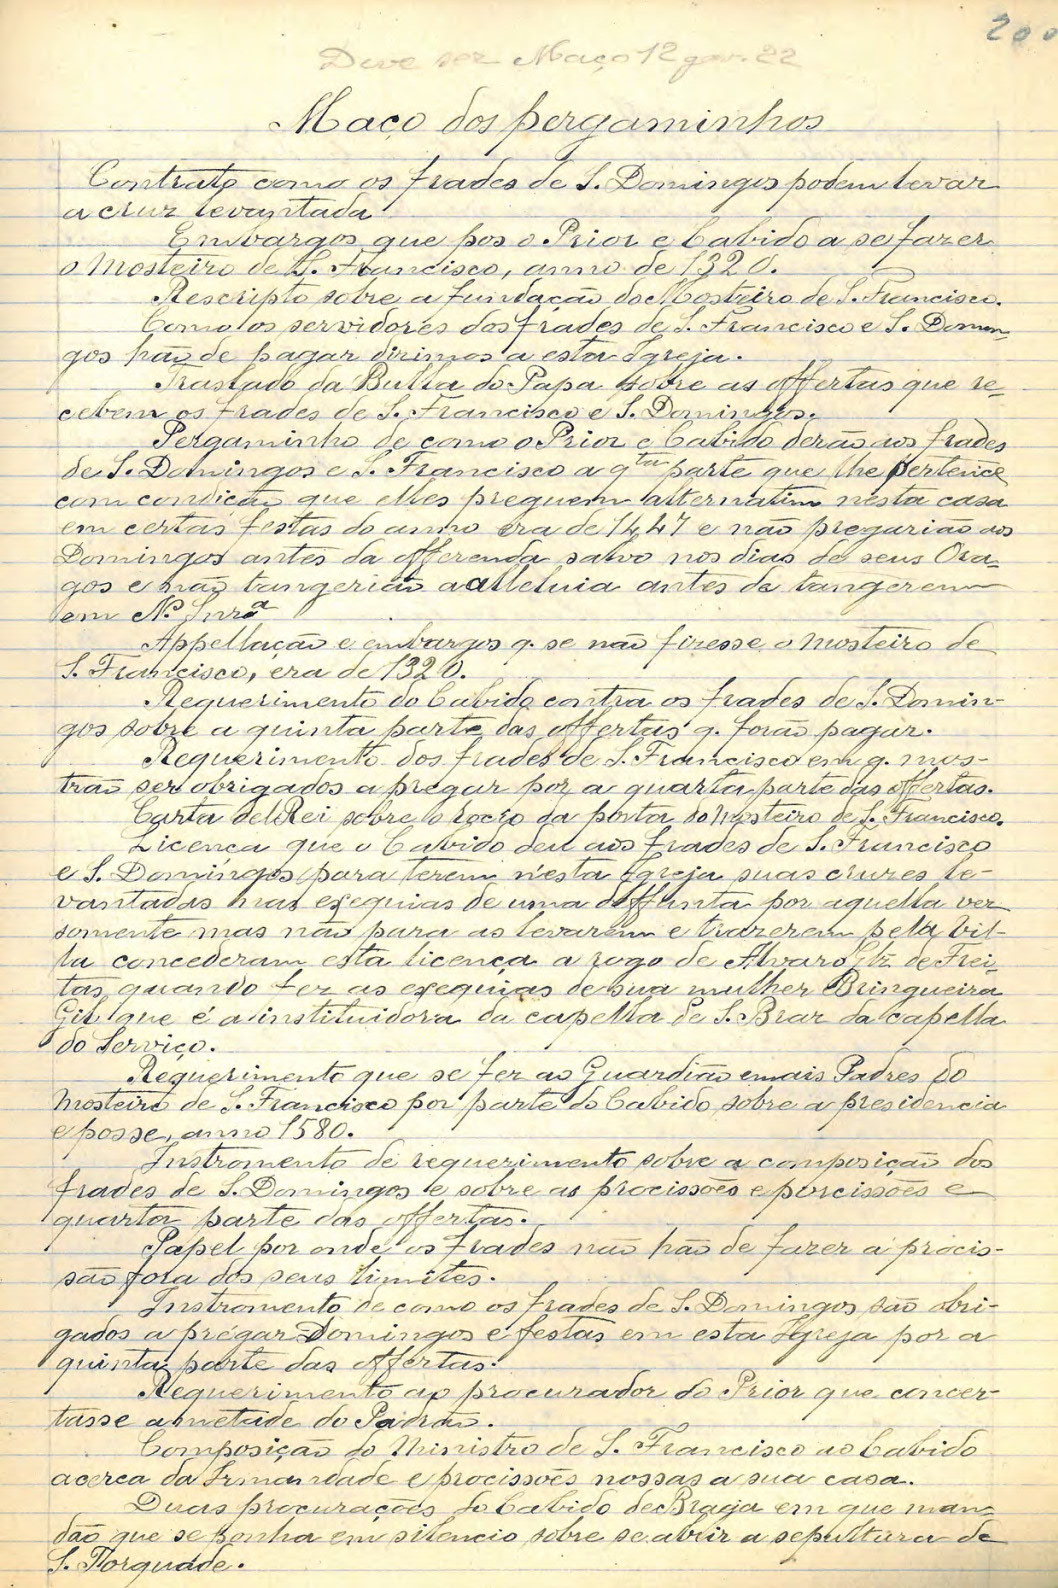 200
Deve ser Maço 12 gav. 22
Maço dos pergaminhos
Contrato como os frades de S. Domingos podem levar
a cruz levantada
Embargos que pos o Prior e Cabido a se fazer
o Mosteiro de S. Francisco, anno de 1320.
Rescripto sobre a fundação do Mosteiro de S. Francisco.
Como os servidores dos frades de S. Francisco e S. Domin-
gos hão de pagar dizimos a esta Igreja.
Traslado da Bulla do Papa sobre as offertas que re-
cebem os frades de S. Francisco e S. Domingos.
Pergaminho de como o Prior e Cabido derão aos frades
de S. Domingos e S. Francisco a qta parte que lhe pertence
com condição que elles preguem alternatim nesta casa
em certas festas do anno era de 1447 e não pregarião aos
Domingos antes da offerenda salvo nos dias de seus Ora-
gos e não tangerião a alleluia antes de tangerem
em Na Snra
Appellação e embargos q. se não fizesse o mosteiro de
S. Francisco, era de 1320.
Requerimento do Cabido contra os frades de S. Domin-
gos sobre a quinta parte das offertas q. forão pagar.
Requerimento dos frades de S. Francisco em q. mos-
trão ser obrigados a pregar por a quarta parte das offertas.
Carta delRei sobre o rocio da porta do Mosteiro de S. Francisco.
Licença que o Cabido deu aos frades de S. Francisco
e S. Domingos para terem n'esta Igreja suas cruzes le-
vantadas nas exequias de uma deffunta por aquella vez
somente mas não para as levarem e trazerem pela Vil-
la concederam esta licença a rogo de Alvaro Glz. de Frei-
tas, quando fez as exequias de sua mulher Bringueira
Gil que é a instituidora da capella de S. Braz da capella
do Serviço.
Requerimento que se fez ao Guardião e mais Padres do
Mosteiro de S. Francisco por parte do Cabido sobre a presidencia
e posse, anno 1580.
Instromento de requerimento sobre a composição dos
frades de S. Domingos e sobre as procissões e porcissões e
quarta parte das offertas.
Papel por onde os frades não hão de fazer a procis-
são fora dos seus limites.
Instromento de como os frades de S. Domingos são obri-
gados a prégar Domingos e festas em esta Igreja por a
quinta parte das offertas.
Requerimento ao procurador do Prior que concer-
tasse a metade do Padrão.
Composição do Ministro de S. Francisco ao Cabido
acerca da Irmandade e procissões nossas a sua casa.
Duas procurações do Cabido de Braga em que man-
dão que se ponha em silencio sobre se abrir a sepultura de
S. Torquade.